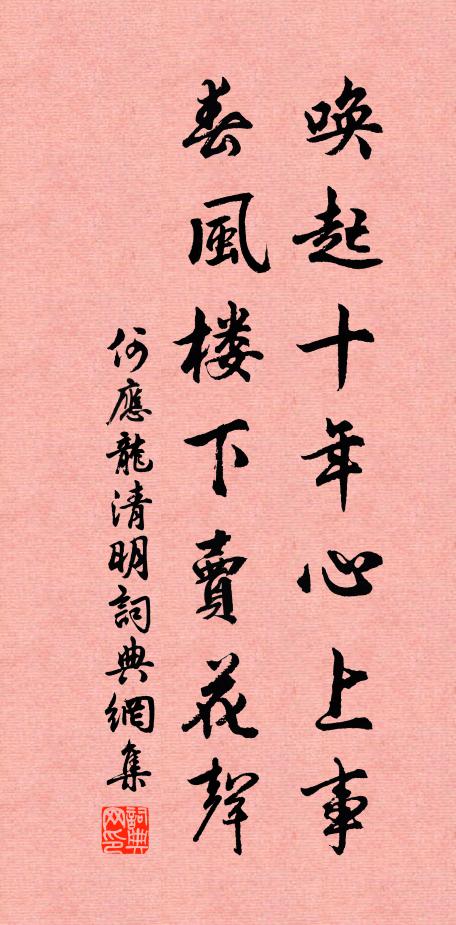 喚起十年心上事
春風楼下賣花聲
何應龍清明詞典網集
詞典网印